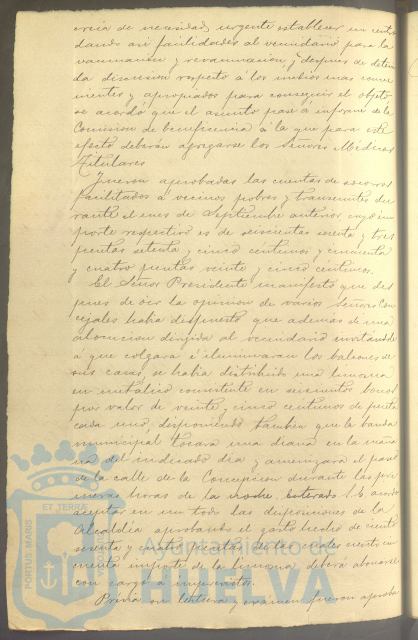 creia de necesidad urgente establecer un centro
dando asi facilidades al vecindario para la
vacunacion y revacunacion, y despues de deteni
da discusion respecto á los medios mas conve
nientes y apropiados para conseguir el objeto
se acordó que el asunto pase á informe de la
Comision de beneficencia á la que para este
efecto deberán agregarse los Señores Médicos
Titulares
Fueron aprobadas las cuentas de socorros
facilitados á vecinos pobres y transeuntes du
rante el mes de Septiembre anterior cuyo im
porte respectivo es de seiscientas sesenta y tres
pesetas setenta y cinco centimos y cincuenta
y cuatro pesetas veinte y cinco centimos.
El Señor Presidente manifestó que des
pues de oir la opinion de varios Señores Con
cejales habia dispuesto que ademas de una
alocucion dirijida al vecindario invitandole
á que colgara é iluminaran los balcones de
sus casas, se habia distribuido una limosna
en metálico consistente en seiscientos bonos
por valor de veinte y cinco centimos de peseta
cada uno, disponiendo tambien que la banda
municipal tocara una diana en la maña
na del indicado dia y amenizara el paseo
de la calle de la Concepcion durante las pri
meras horas de la noche. Enterado S.E. acordó
aceptar en un todo las disposiciones de la
Alcaldia aprobando el gasto hecho de ciento
sesenta y cuatro pesetas de las cuales ciento cin
cuenta importe de la limosna deberá abonarse
con cargo á imprevistos.
Prévia su lectura y exámen fueron aproba
PORTUS MARIS
ET TERRÆ
Ayuntamiento de
HUELVA